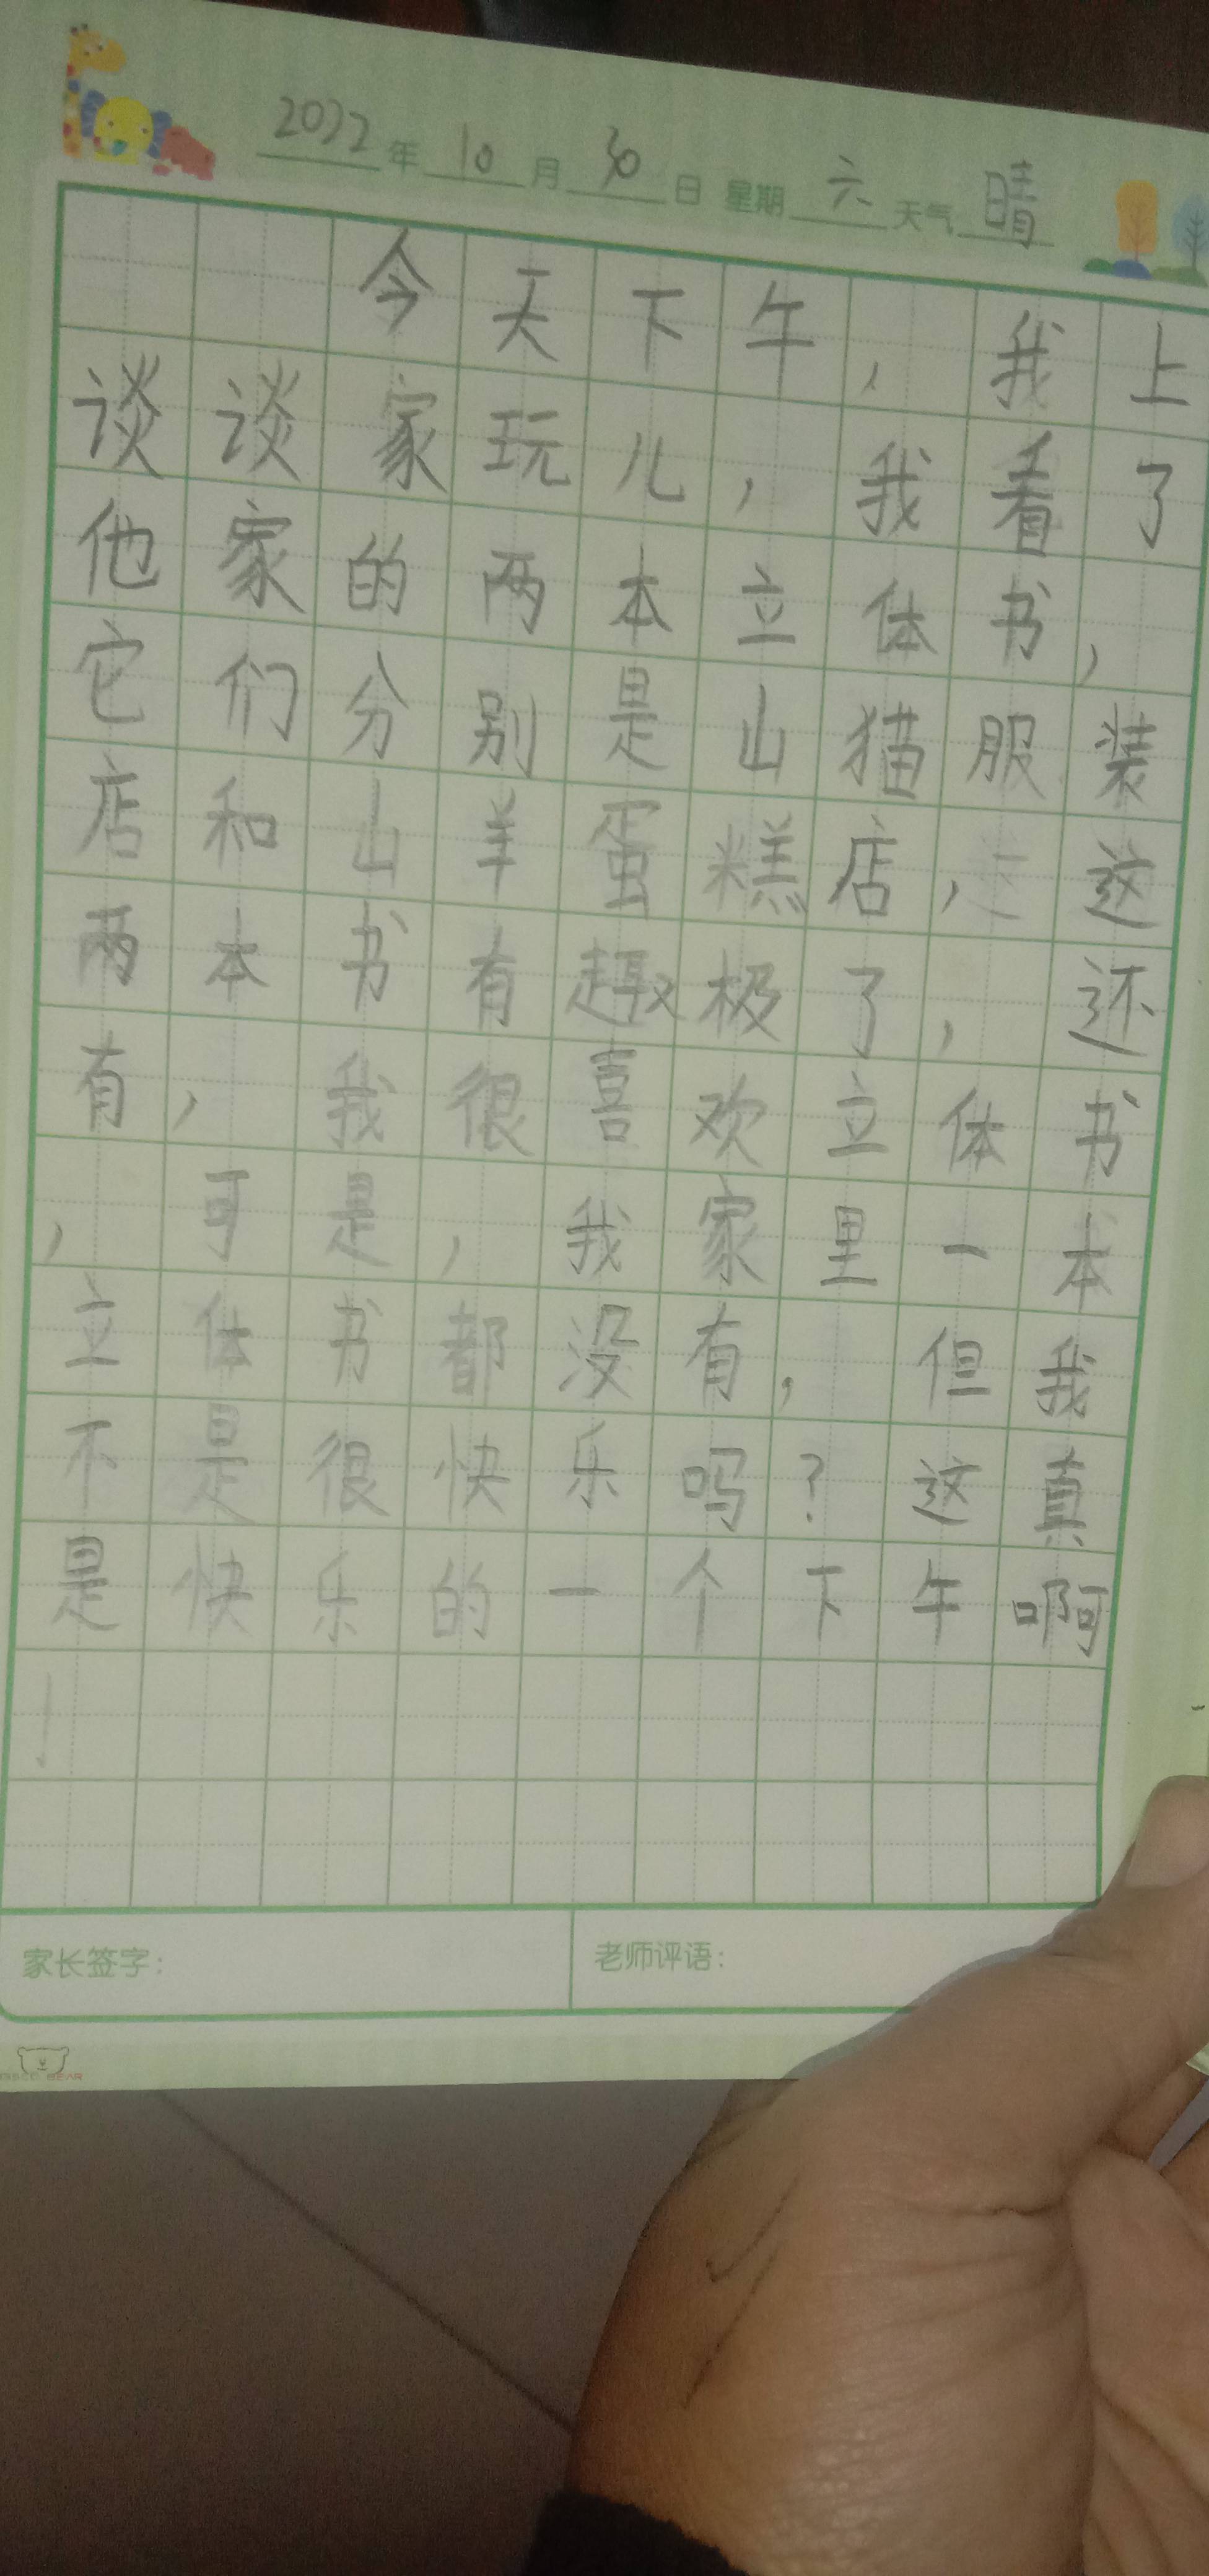 2022年10月30日 星期六 天气晴
今天下午，我上
谈谈家玩儿，我看了
他家的两本立体书，
它们分别是山猫服装
店和山羊蛋糕店，这
两本书有趣极了，还
有，我很喜欢立体书
，可是，我家里一本
立体书都没有，但我
不是很快乐吗？这真
是快乐的一个下午啊
！
家长签字：
老师评语：